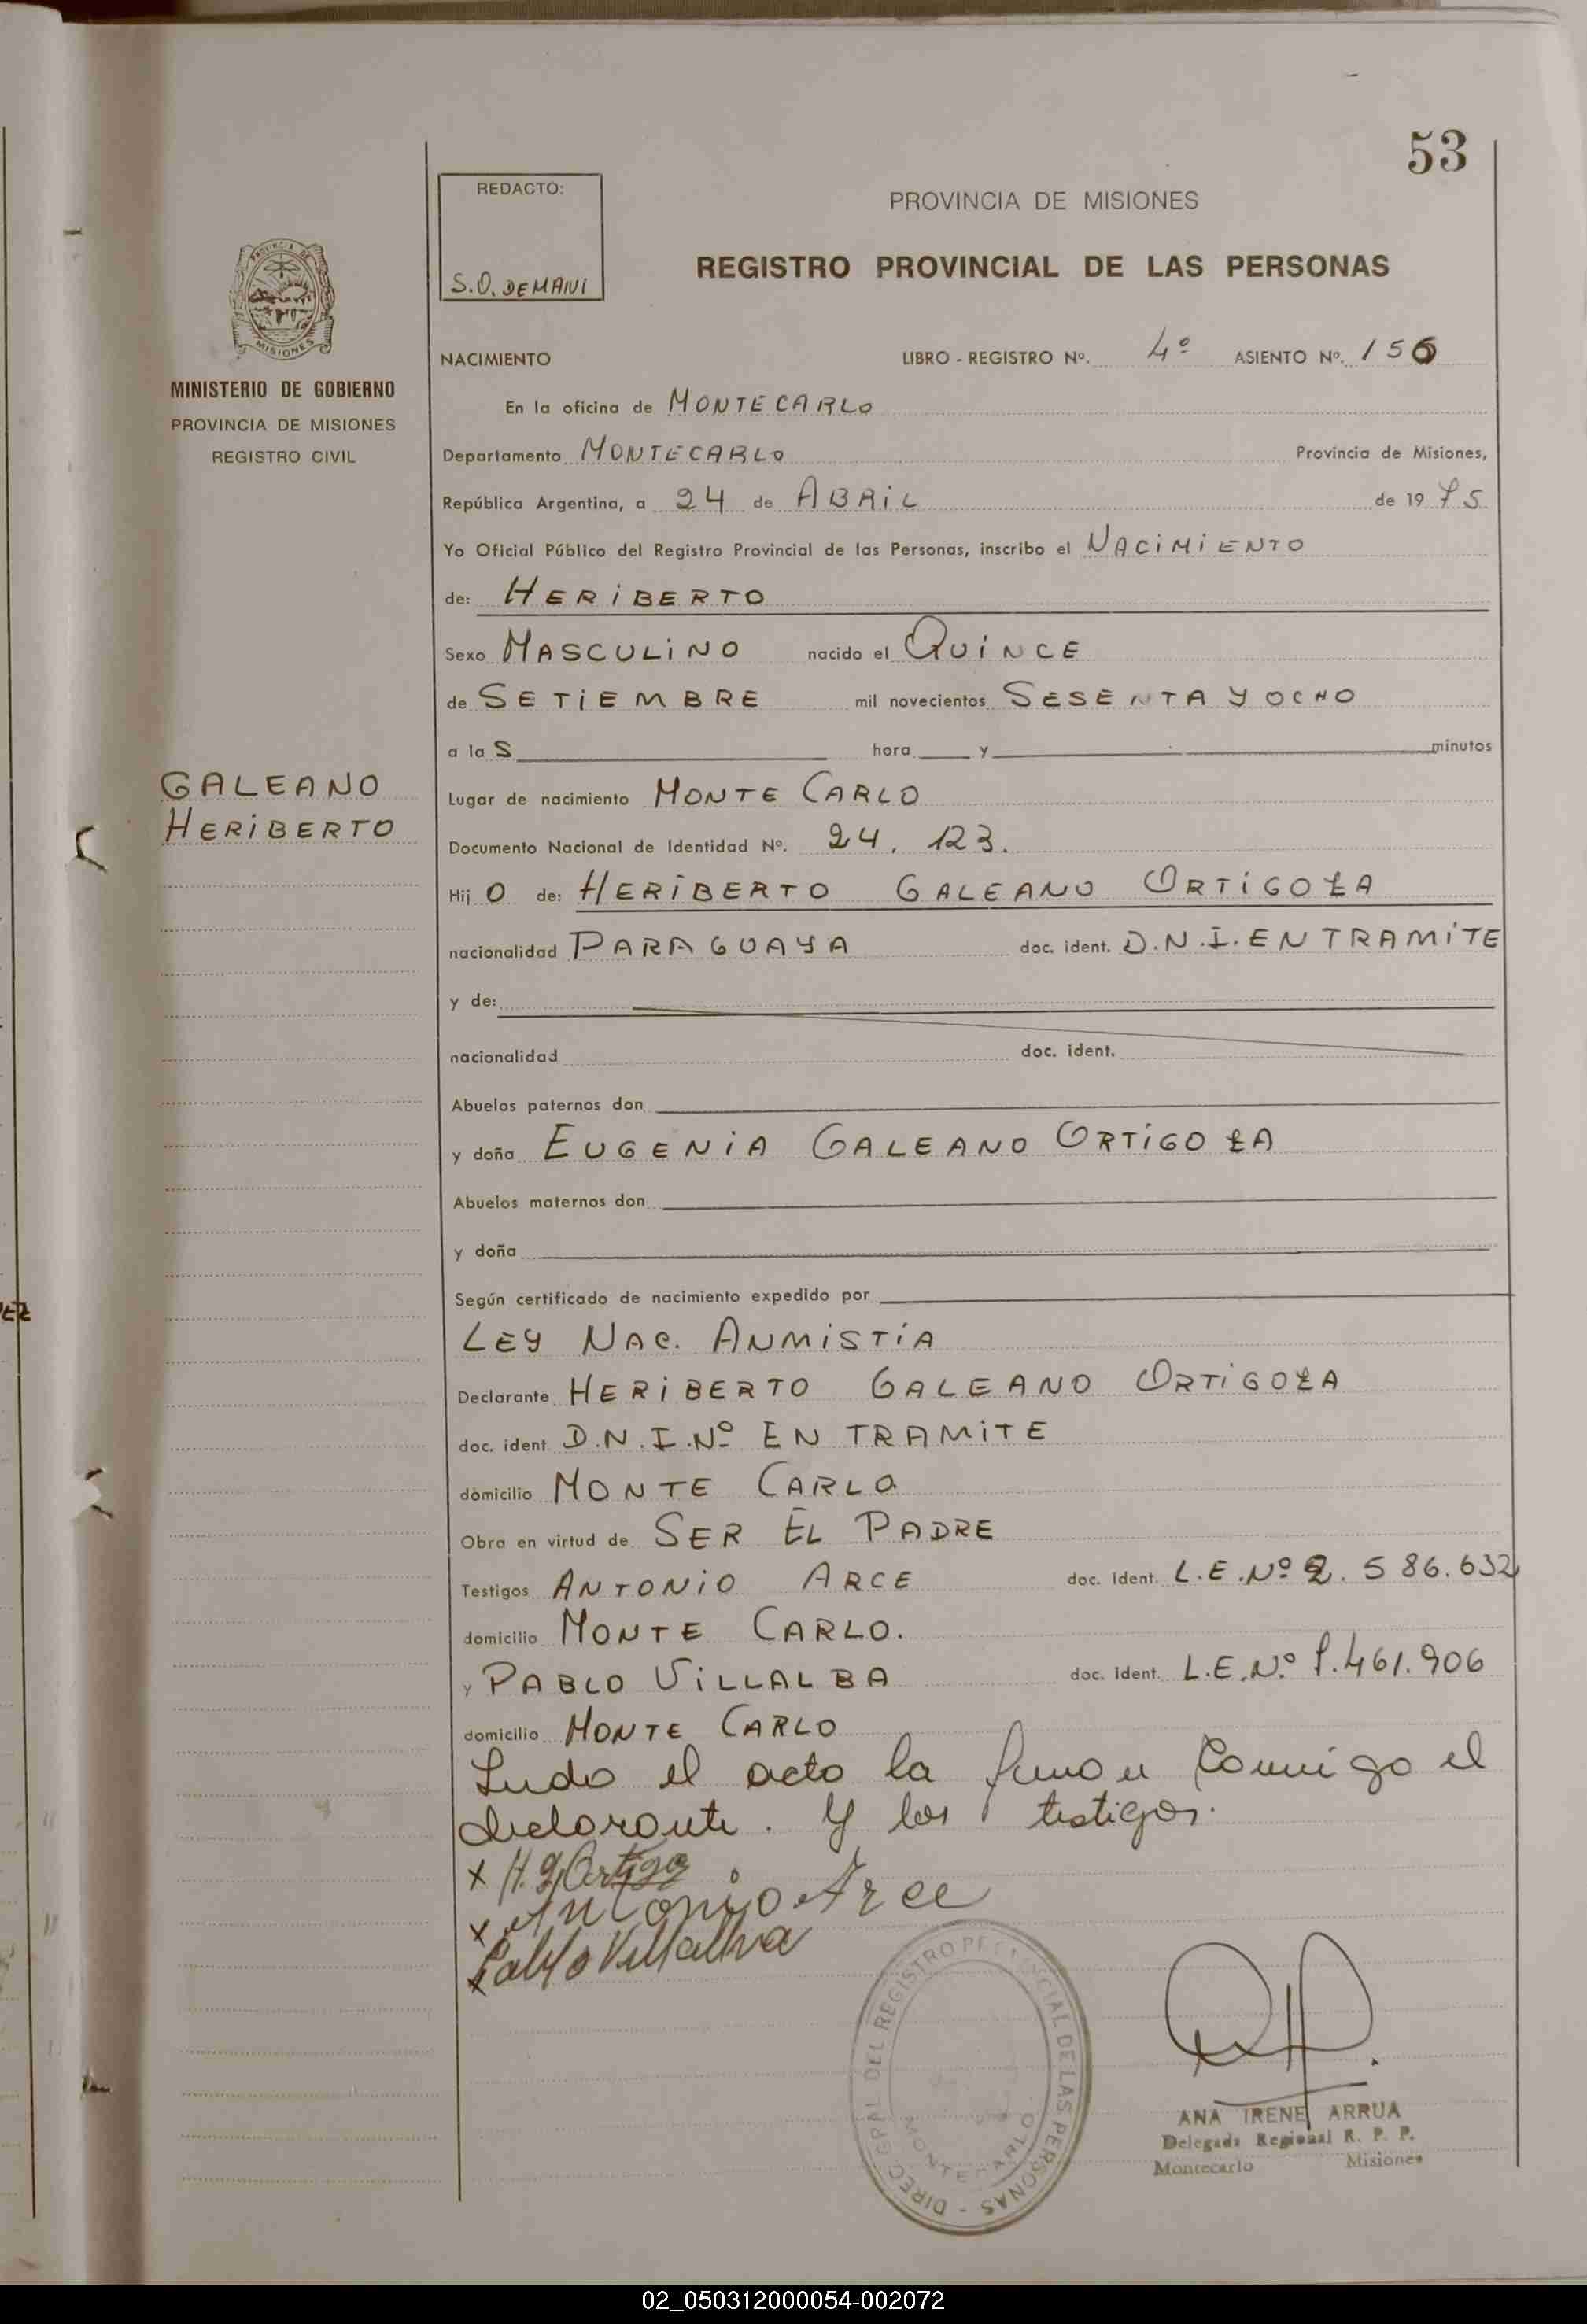 53
REDACTO:
S.O. DEMAINI
PROVINCIA DE MISIONES
REGISTRO PROVINCIAL DE LAS PERSONAS
PROVINCIA DE
MISIONES
MINISTERIO DE GOBIERNO
PROVINCIA DE MISIONES
REGISTRO CIVIL
GALEANO
HERIBERTO
NACIMIENTO LIBRO - REGISTRO Nº. 4º ASIENTO Nº. 156
En la oficina de MONTECARLO
Departamento MONTECARLO Provincia de Misiones,
República Argentina, a 24 de ABRIL de 1975
Yo Oficial Público del Registro Provincial de las Personas, inscribo el NACIMIENTO
de: HERIBERTO
Sexo MASCULINO nacido el QUINCE
de SETIEMBRE mil novecientos SESENTA Y OCHO
a la S hora y minutos
Lugar de nacimiento MONTE CARLO
Documento Nacional de Identidad Nº. 24. 123.
Hij O de: HERIBERTO GALEANO ORTIGOZA
nacionalidad PARAGUAYA doc. ident. D.N.I. EN TRAMITE
y de:
nacionalidad doc. ident.
Abuelos paternos don
y doña EUGENIA GALEANO ORTIGOZA
Abuelos maternos don
y doña
Según certificado de nacimiento expedido por
LEY NAC. ANMISTÍA
Declarante HERIBERTO GALEANO ORTIGOZA
doc. ident D.N.I.Nº EN TRAMITE
domicilio MONTE CARLO
Obra en virtud de SER EL PADRE
Testigos ANTONIO ARCE doc. Ident. L.E.Nº 2.586.632
domicilio MONTE CARLO.
y PABLO VILLALBA doc. ident. L.E.Nº 7.461.906
domicilio MONTE CARLO
Leido el acto la firman conmigo el
declarante. y los testigos.
x H. G. Ortigoz
x Antonio Arce
x Pablo Villalva
DIREC. GRAL DEL REGISTRO PROVINCIAL DE LAS PERSONAS -
MONTECARLO
ANA IRENE ARRUA
Delegada Regional R. P. P.
Montecarlo Misiones
02_050312000054-002072